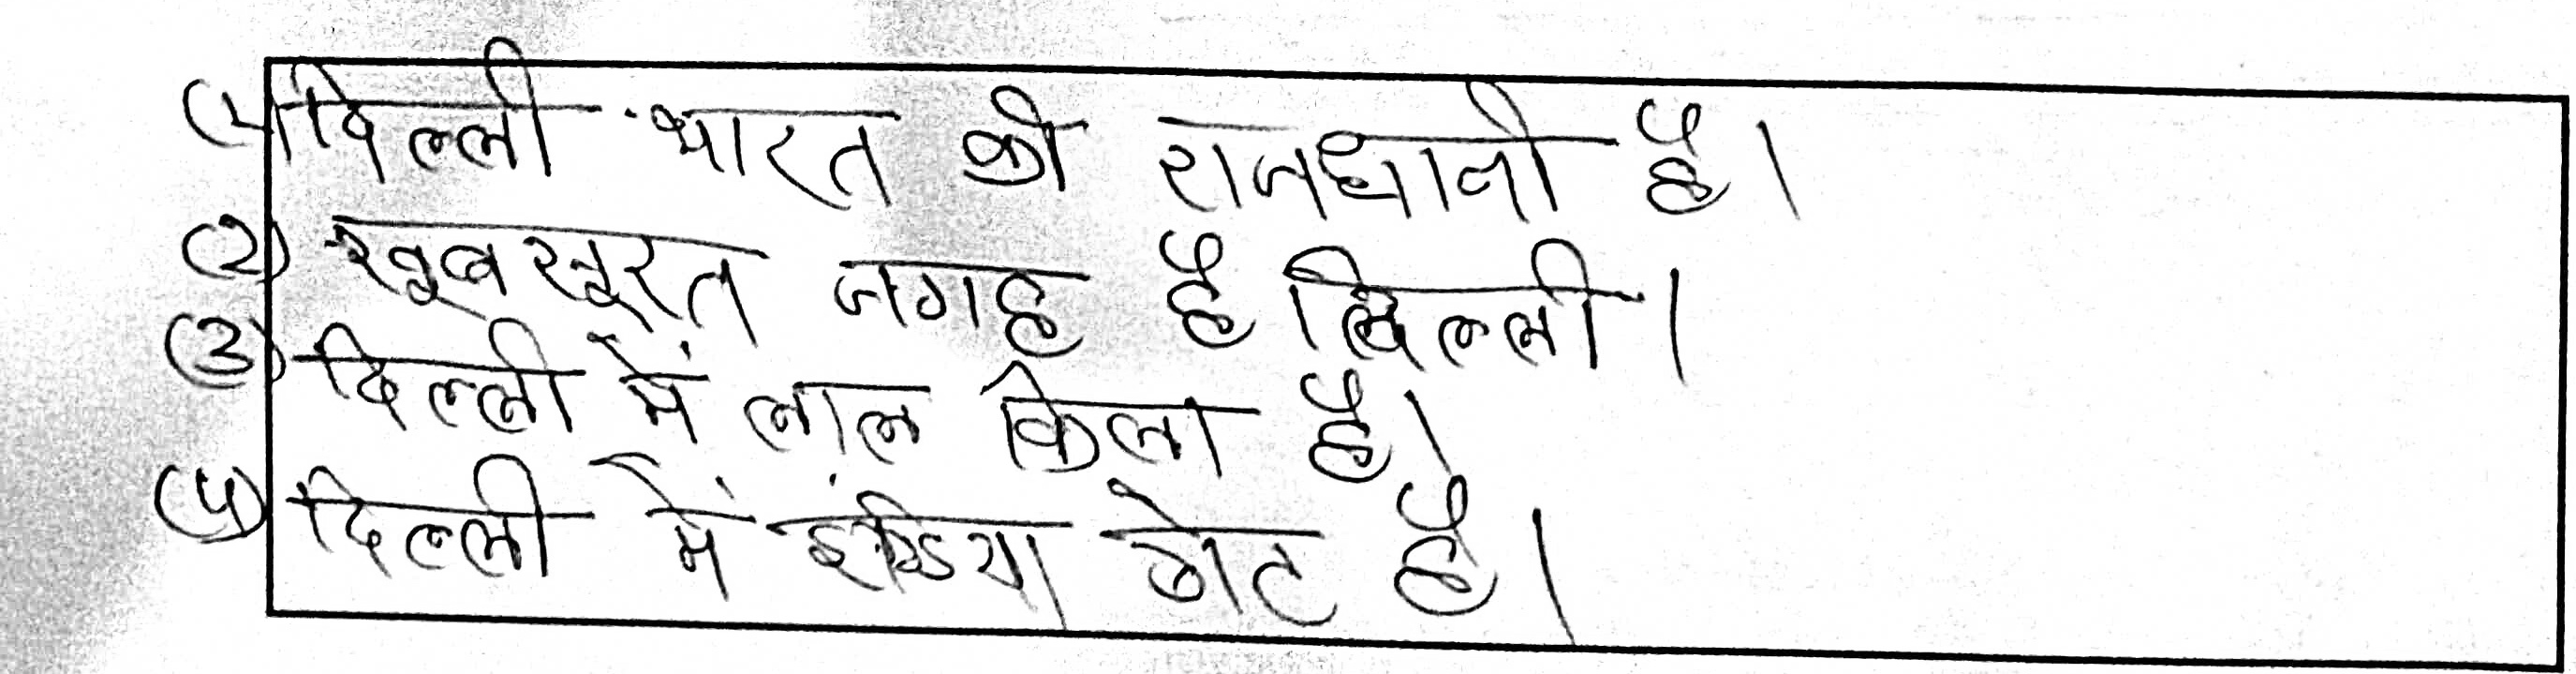 (1) दिल्ली भारत की राजधानी है।
(2) खूबसूरत जगह है दिल्ली।
(3) दिल्ली में लाल किला है।
(4) दिल्ली में इंडिया गेट है।